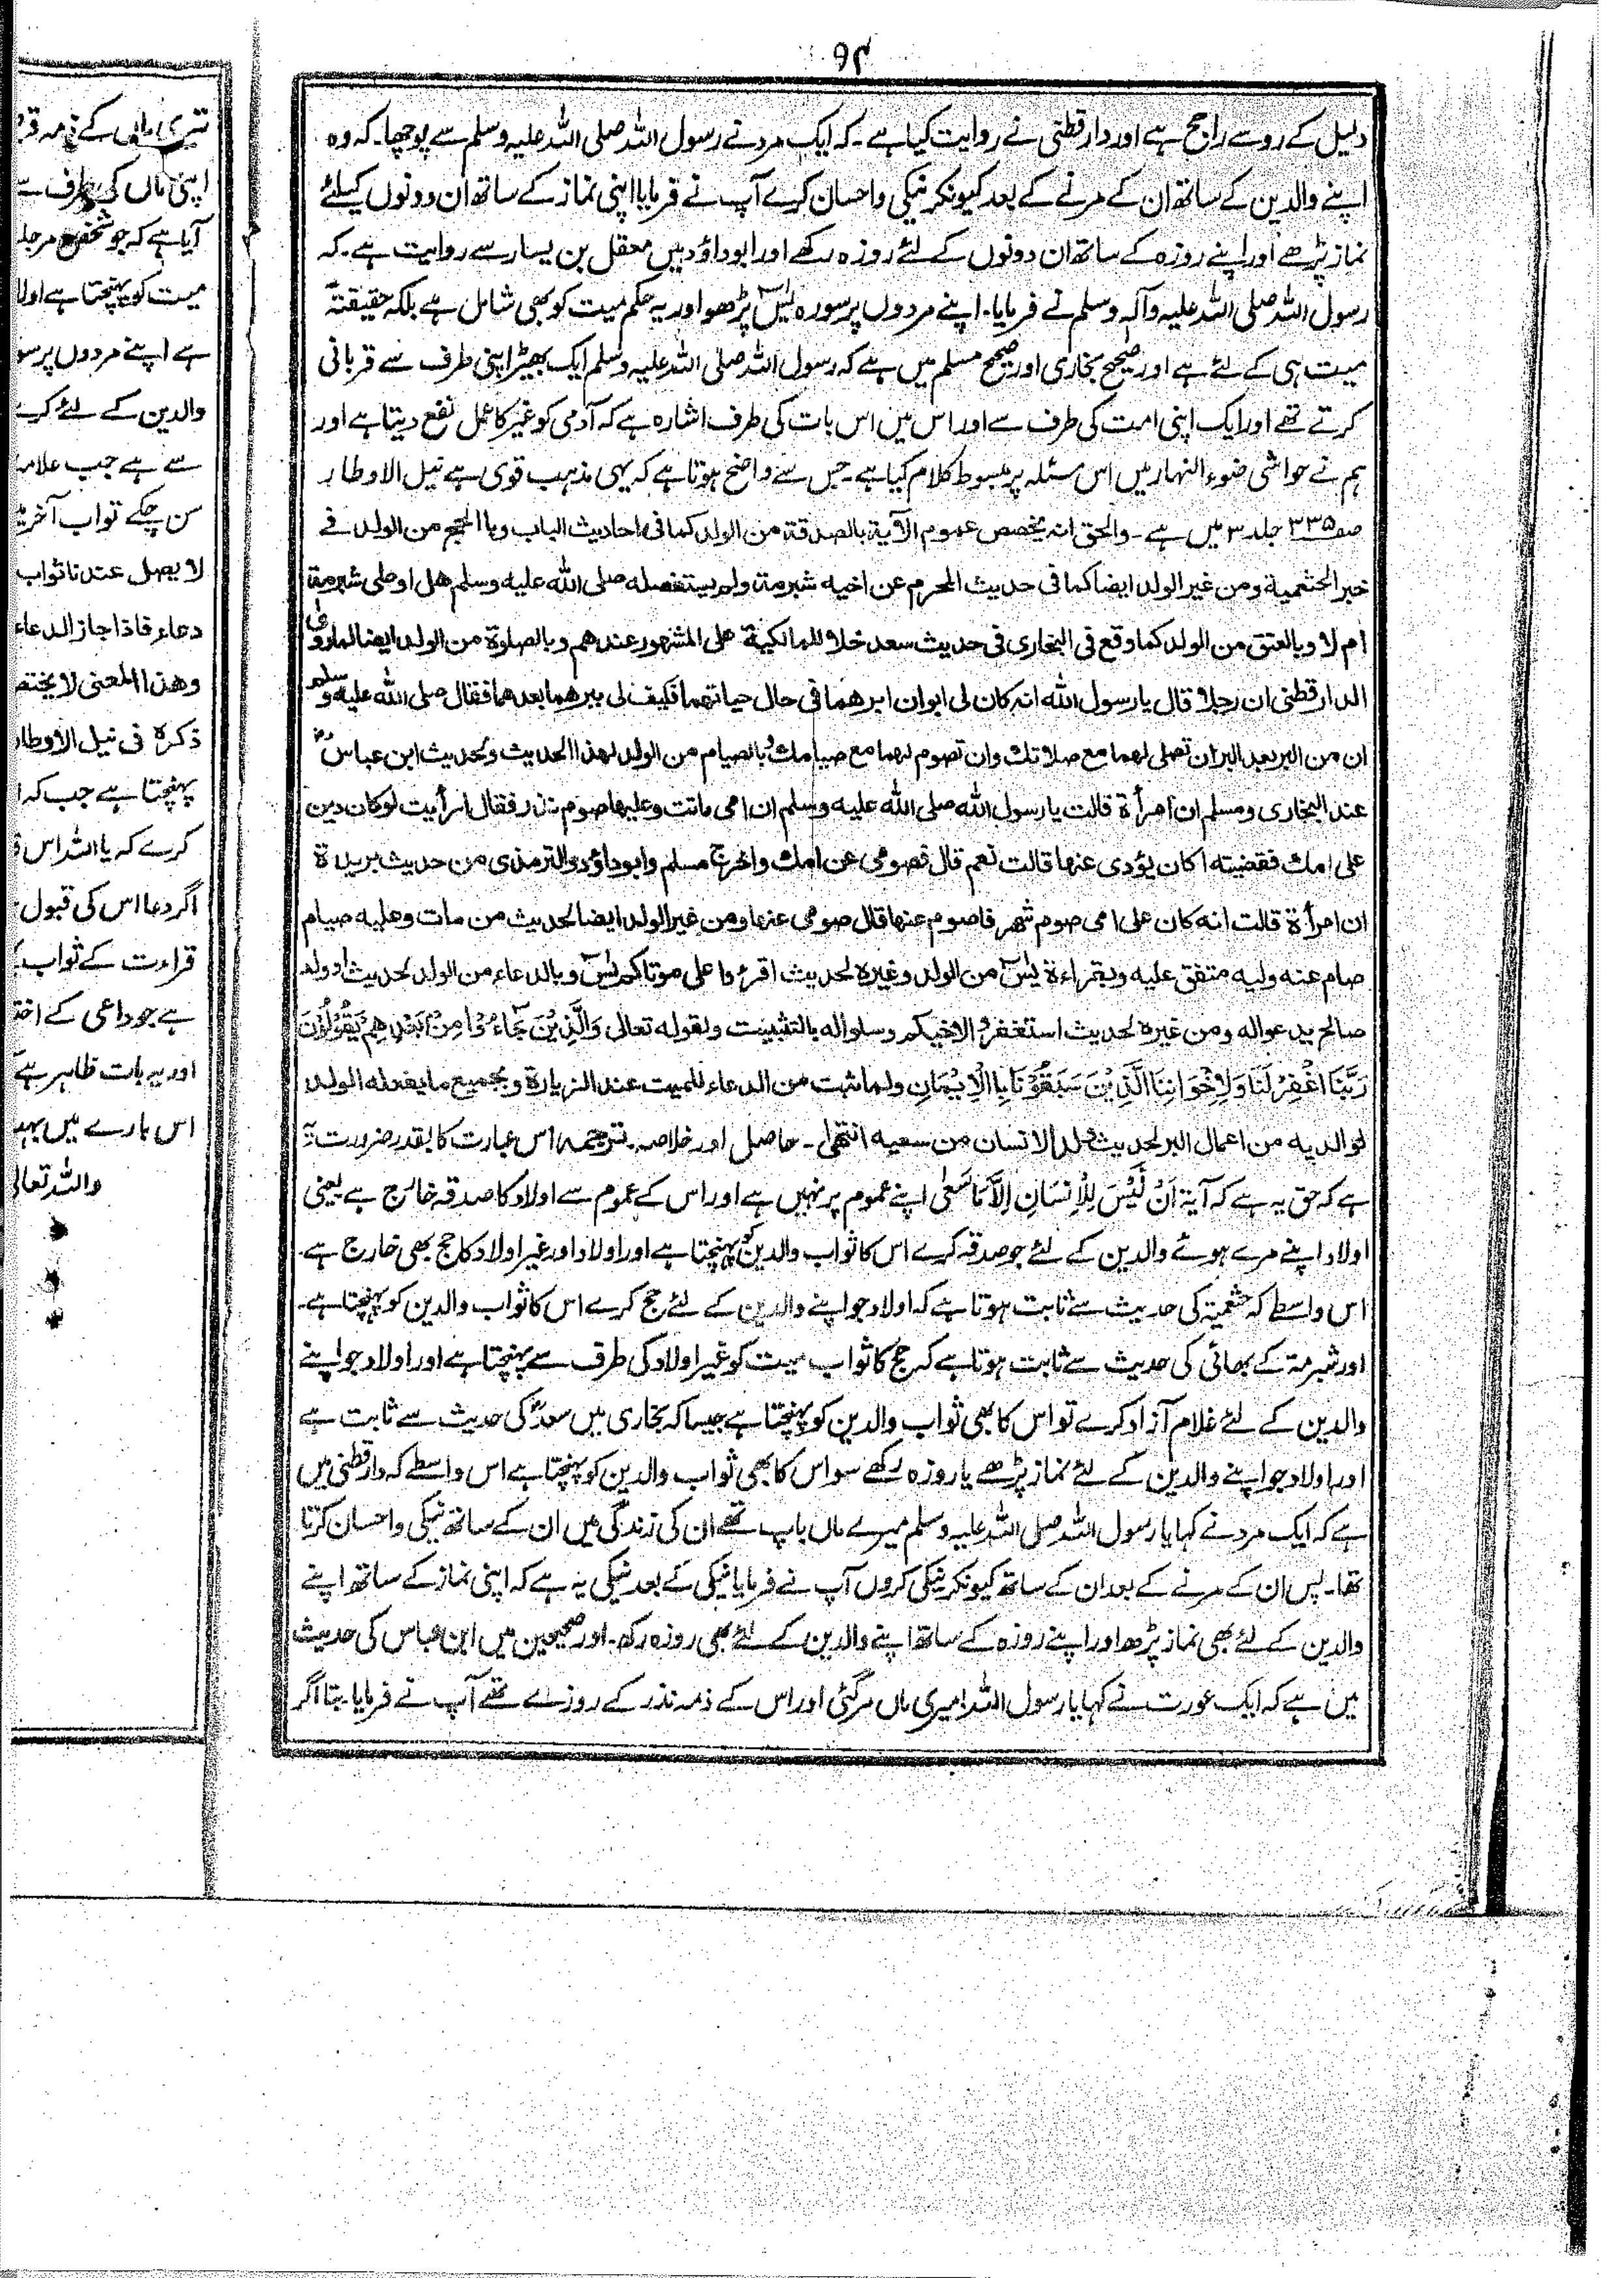 دلیل کے رو سے راجح ہے اور دار قطنی نے روایت کیا ہے ۔ کہ ایک مرد نے رسول اللہ صلی اللہ علیہ وسلم سے پوچھا ۔ کہ وہ
اپنے والدین کے ساتھ ان کے مرنے کے بعد کیونکر نیکی و احسان کرے آپ نے فرمایا اپنی نماز کے ساتھ ان دونوں کیلئے
نماز پڑھے اور اپنے روزہ کے ساتھ ان دونوں کے لئے روزہ رکھے اور ابوداؤد میں معقل بن یسار سے روایت ہے ۔ کہ
رسول اللہ صلی اللہ علیہ وآلہ وسلم نے فرمایا ۔ اپنے مردوں پر سورہ یٰسٓ پڑھو اور یہ حکم میت کو بھی شامل ہے بلکہ حقیقتہً
میت ہی کے لئے ہے اور صحیح بخاری اور صحیح مسلم میں ہے کہ رسول اللہ صلی اللہ علیہ وسلم ایک بھیڑ اپنی طرف سے قربانی
کرتے تھے اور ایک اپنی امت کی طرف سے اور اس میں اس بات کی طرف اشارہ ہے کہ آدمی کو غیر کا عمل نفع دیتا ہے اور
ہم نے حواشی ضوء النہار میں اس مسئلہ پر مبسوط کلام کیا ہے ۔ جس سے واضح ہوتا ہے کہ یہی مذہب قوی ہے نیل الاوطار
صفہ ۳۳۵ جلد ۳ میں ہے ۔ والحق انہ یخصص عموم الآیۃ بالصدقۃ من الولد کما فی احادیث الباب وبالحج من الولد فے
خبر الخثعمیۃ ومن غیر الولد ایضا کما فی حدیث المحرم عن اخیہ شبرمۃ ولم یستفصلہ صلی اللہ علیہ وسلم ھل اوصی شبرمۃ
ام لا وبالعتق من الولد کما وقع فی البخاری فی حدیث سعد خلا للمالکیۃ علی المشہور عندھم وبالصلوۃ من الولد ایضا لما روی
الدار قطنی ان رجلا قال یا رسول اللہ انہ کان لی ابوان ابرھما فی حال حیاتھما فکیف لی ببرھما بعدھما فقال صلی اللہ علیہ وسلم
ان من البر بعد البر ان تصلی لھما مع صلاتک وان تصوم لھما مع صیامک وبالصیام من الولد لھذا الحدیث ولحدیث ابن عباسؓ
عند البخاری ومسلم ان امرأۃ قالت یا رسول اللہ صلی اللہ علیہ وسلم ان امی ماتت وعلیھا صوم نذر فقال ارأیت لو کان دین
علی امک فقضیتہ اکان یؤدی عنھا قالت نعم قال فصومی عن امک واخرج مسلم وابوداؤد والترمذی من حدیث بریدۃ
ان امرأۃ قالت انہ کان علی امی صوم شھر فاصوم عنھا قال صومی عنھا ومن غیر الولد ایضا لحدیث من مات وعلیہ صیام
صام عنہ ولیہ متفق علیہ وبقراءۃ یٰسٓ من الولد وغیرہ لحدیث اقرءوا علی موتاکم یٰسٓ وبالدعاء من الولد لحدیث او ولد
صالح یدعوالہ ومن غیرہ لحدیث استغفروا لاخیکم وسلوا لہ بالتثبیت ولقولہ تعالی وَالَّذِیْنَ جَآءُوْا مِنْۢ بَعْدِ ھِمْ یَقُوْلُوْنَ
رَبَّنَا اغْفِرْ لَنَا وَلِاِخْوَانِنَا الَّذِیْنَ سَبَقُوْنَا بِالْاِیْمَانِ ولما ثبت من الدعاء للمیت عند الزیارۃ وبجمیع ما یفعلہ الولد
لوالدیہ من اعمال البر لحدیث ولد الانسان من سعیہ انتھٰی ۔ حاصل اور خلاصہ ترجمہ اس عبارت کا بقدر ضرورت
ہے کہ حق یہ ہے کہ آیۃ اَنْ لَّیْسَ لِلْاِنْسَانِ اِلَّا مَا سَعٰی اپنے عموم پر نہیں ہے اور اس کے عموم سے اولاد کا صدقہ خارج ہے یعنی
اولاد اپنے مرے ہوئے والدین کے لئے جو صدقہ کرے اس کا ثواب والدین کو پہنچتا ہے اور اولاد اور غیر اولاد کا حج بھی خارج ہے ۔
اس واسطے کہ خثعمیۃ کی حدیث سے ثابت ہوتا ہے کہ اولاد جو اپنے والدین کے لئے حج کرے اس کا ثواب والدین کو پہنچتا ہے ۔
اور شبرمۃ کے بھائی کی حدیث سے ثابت ہوتا ہے کہ حج کا ثواب میت کو غیر اولاد کی طرف سے پہنچتا ہے اور اولاد جو اپنے
والدین کے لئے غلام آزاد کرے تو اس کا بھی ثواب والدین کو پہنچتا ہے جیسا کہ بخاری میں سعدؓ کی حدیث سے ثابت ہے
اور اولاد جو اپنے والدین کے لئے نماز پڑھے یا روزہ رکھے سو اس کا بھی ثواب والدین کو پہنچتا ہے اس واسطے کہ دار قطنی میں
ہے کہ ایک مرد نے کہا یا رسول اللہ صلی اللہ علیہ وسلم میرے ماں باپ تھے ان کی زندگی میں ان کے ساتھ نیکی و احسان کرتا
تھا ۔ پس ان کے مرنے کے بعد ان کے ساتھ کیونکر نیکی کروں آپ نے فرمایا نیکی کے بعد نیکی یہ ہے کہ اپنی نماز کے ساتھ اپنے
والدین کے لئے بھی نماز پڑھ اور اپنے روزہ کے ساتھ اپنے والدین کے لئے بھی روزہ رکھ ۔ اور صحیحین میں ابن عباس کی حدیث
میں ہے کہ ایک عورت نے کہا یا رسول اللہ امیری ماں مر گئی اور اس کے ذمہ نذر کے روزے تھے آپ نے فرمایا ۔ بتا اگر
تیری ماں کے ذمہ
اپنی ماں کی طرف سے
آیا ہے کہ جو شخص مر جا
میت کو پہنچتا ہے اولا
ہے اپنے مردوں پر سو
والدین کے لئے کرے
سے ہے جب علامہ
سن چکے تو اب آخر
لا یصل عندنا ثواب
دعاء فاذا جاز الدعاء
وھذا المعنی لا یختص
ذکرہ فی نیل الاوطار
پہنچتا ہے جب کہ
کرے کہ یا اللہ اس
اگر دعا اس کی قبول
قراءت کے ثواب
ہے جو داعی کے اخت
اور یہ بات ظاہر ہے
اس بارے میں
واللہ تعالٰی